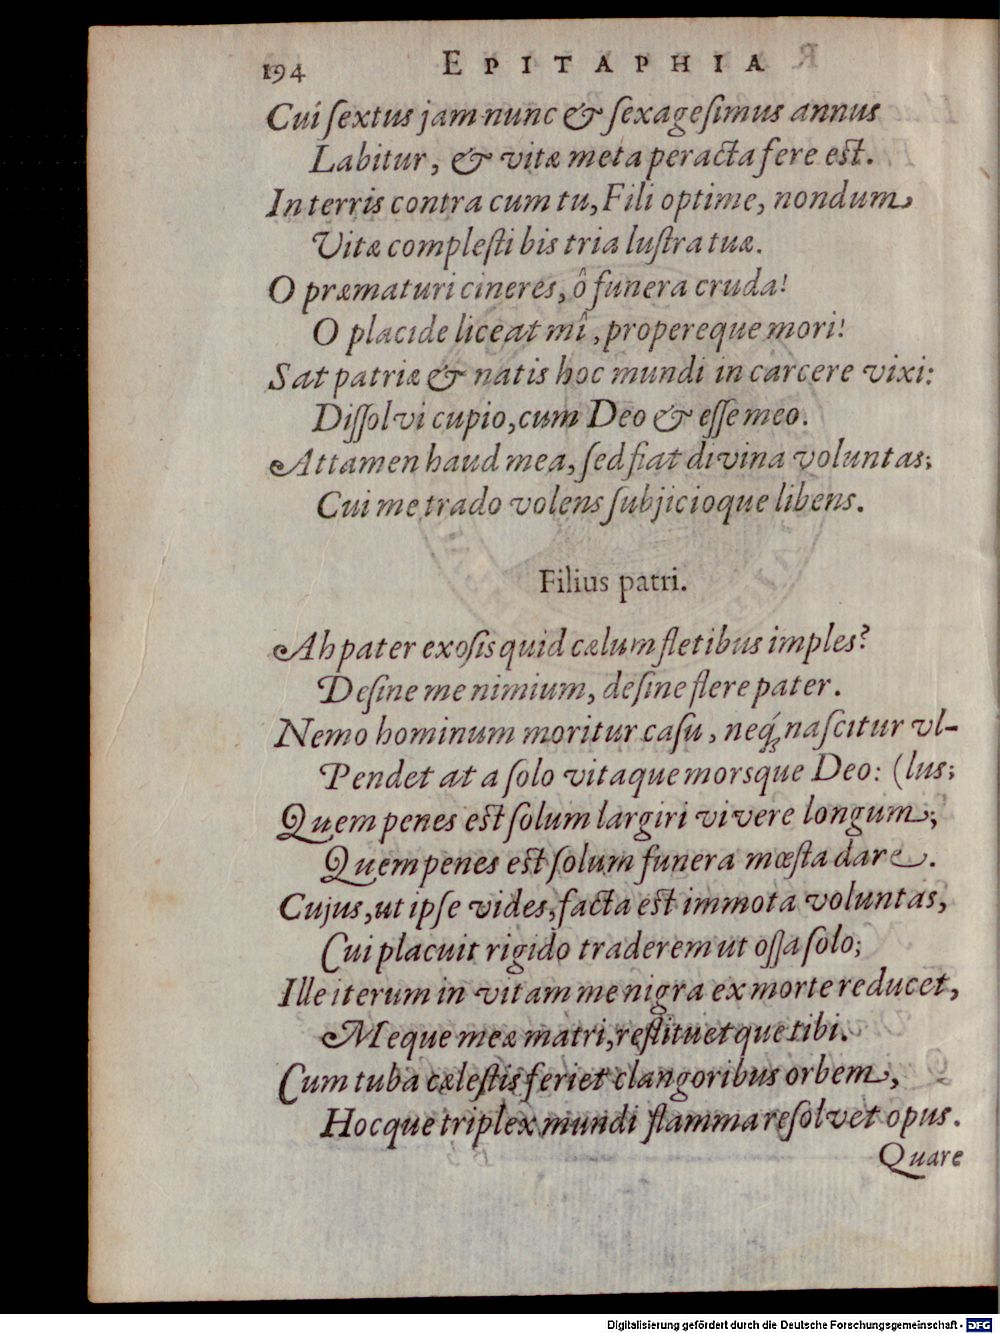 194 EPITAPHIA
Cui ſextus jam nunc & ſexageſimus annus
Labitur, & vitæ meta peracta fere est.
In terris contra cum tu, Fili optime, nondum
Vitæ compleſti bis tria luſtra tuæ.
O præmaturi cineres, ô funera cruda!
O placide liceat mî, propereque mori!
Sat patriæ & natis hoc mundi in carcere vixi:
Diſſolvi cupio, cum Deo & eſſe meo.
Attamen haud mea, ſed fiat divina voluntas;
Cui me trado volens ſubjicioque libens.
Filius patri.
Ah pater exoſis quid cælum fletibus imples?
Deſine me nimium, deſine flere pater.
Nemo hominum moritur caſu, neq́; naſcitur vl-
Pendet at a ſolo vitaque morsque Deo: (lus;
Quem penes est ſolum largiri vivere longum;
Quem penes est ſolum funera mœſta dare.
Cujus, ut ipſe vides, facta est immota voluntas,
Cui placuit rigido traderem ut oſſa ſolo;
Ille iterum in vitam me nigra ex morte reducet,
Meque meæ matri, reſtituetque tibi.
Cum tuba cæleſtis feriet clangoribus orbem,
Hocque triplex mundi flamma reſolvet opus.
Quare
Digitalisierung gefördert durch die Deutsche Forschungsgemeinschaft - DFG